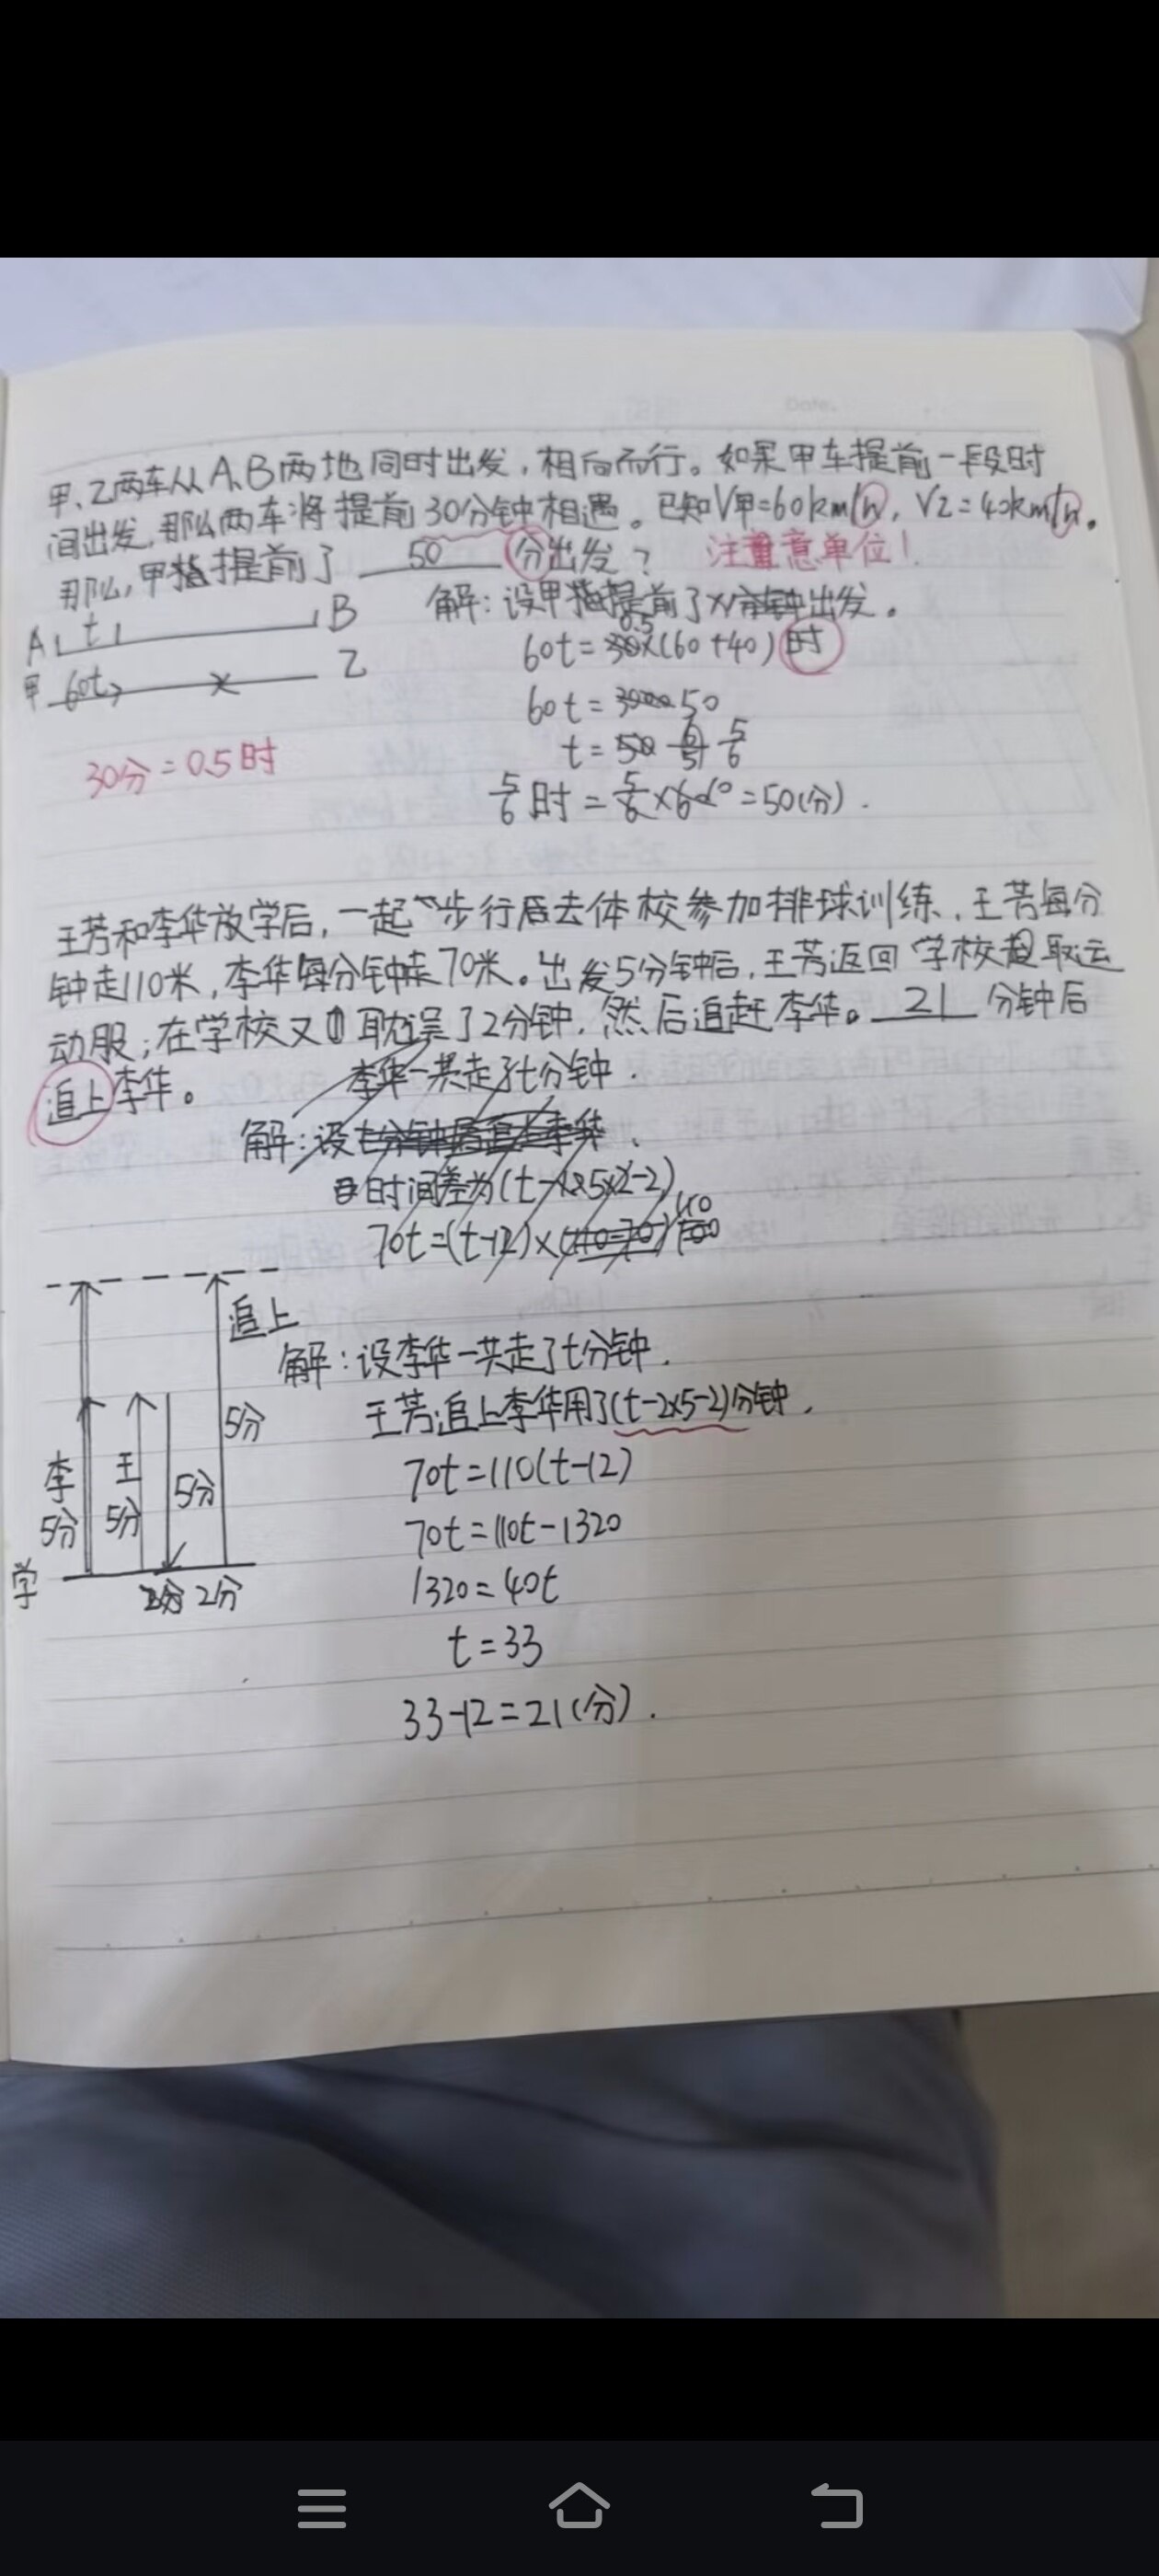 甲、乙两车从A、B两地同时出发,相向而行。如果甲车提前一段时
间出发,那么两车将提前30分钟相遇。已知V甲=60km/h,V乙=40km/h。
那么,甲提前了 50 分出发? 注意单位!
解:设甲提前了 出发。
A t B
60t=0.5×(60+40) 时
甲 60t × 乙
60t=50
30分=0.5时
t=5/6
5/6时=5/6×60=50(分).
王芳和李华放学后,一起步行去体校参加排球训练,王芳每分
钟走110米,李华每分钟走70米。出发5分钟后,王芳返回学校取运
动服;在学校又耽误了2分钟,然后追赶李华。 21 分钟后
追上李华。
李华一共走了t分钟.
解:设
时间差为(t-2×5-2)
70t=(t-12)×110
追上
解:设李华一共走了t分钟.
王芳追上李华用了(t-2×5-2)分钟.
5分
李 5分
王 5分
5分
70t=110(t-12)
70t=110t-1320
学
2分
1320=40t
t=33
33-12=21(分).